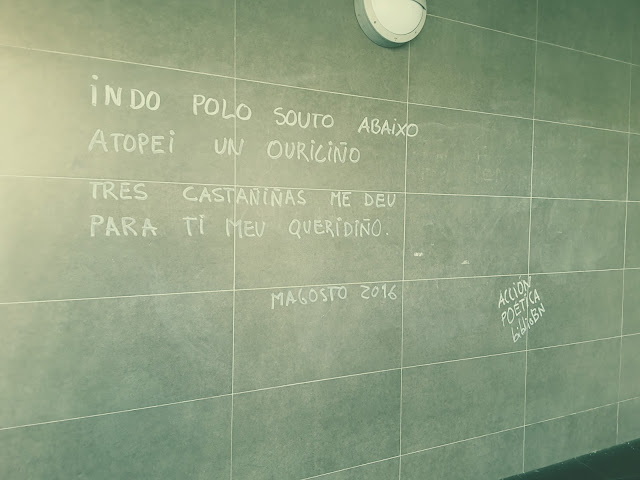 INDO POLO SOUTO ABAIXO
ATOPEI UN OURICIÑO
TRES CASTAÑIÑAS ME DEU
PARA TI MEU QUERIDIÑO.
MAGOSTO 2016
ACCIÓN
POÉTICA
biblioBN